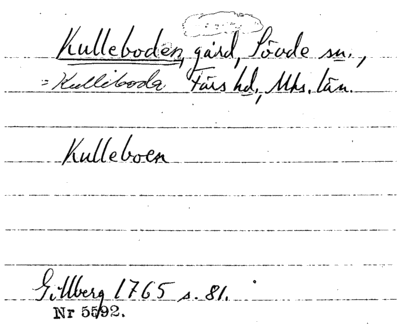 Kulleboden, gård, Sövde sn.,
= Kulleboda Färs hd., Mhs. län.
Kulleboen
Gillberg 1765 s. 81.
Nr 5592.